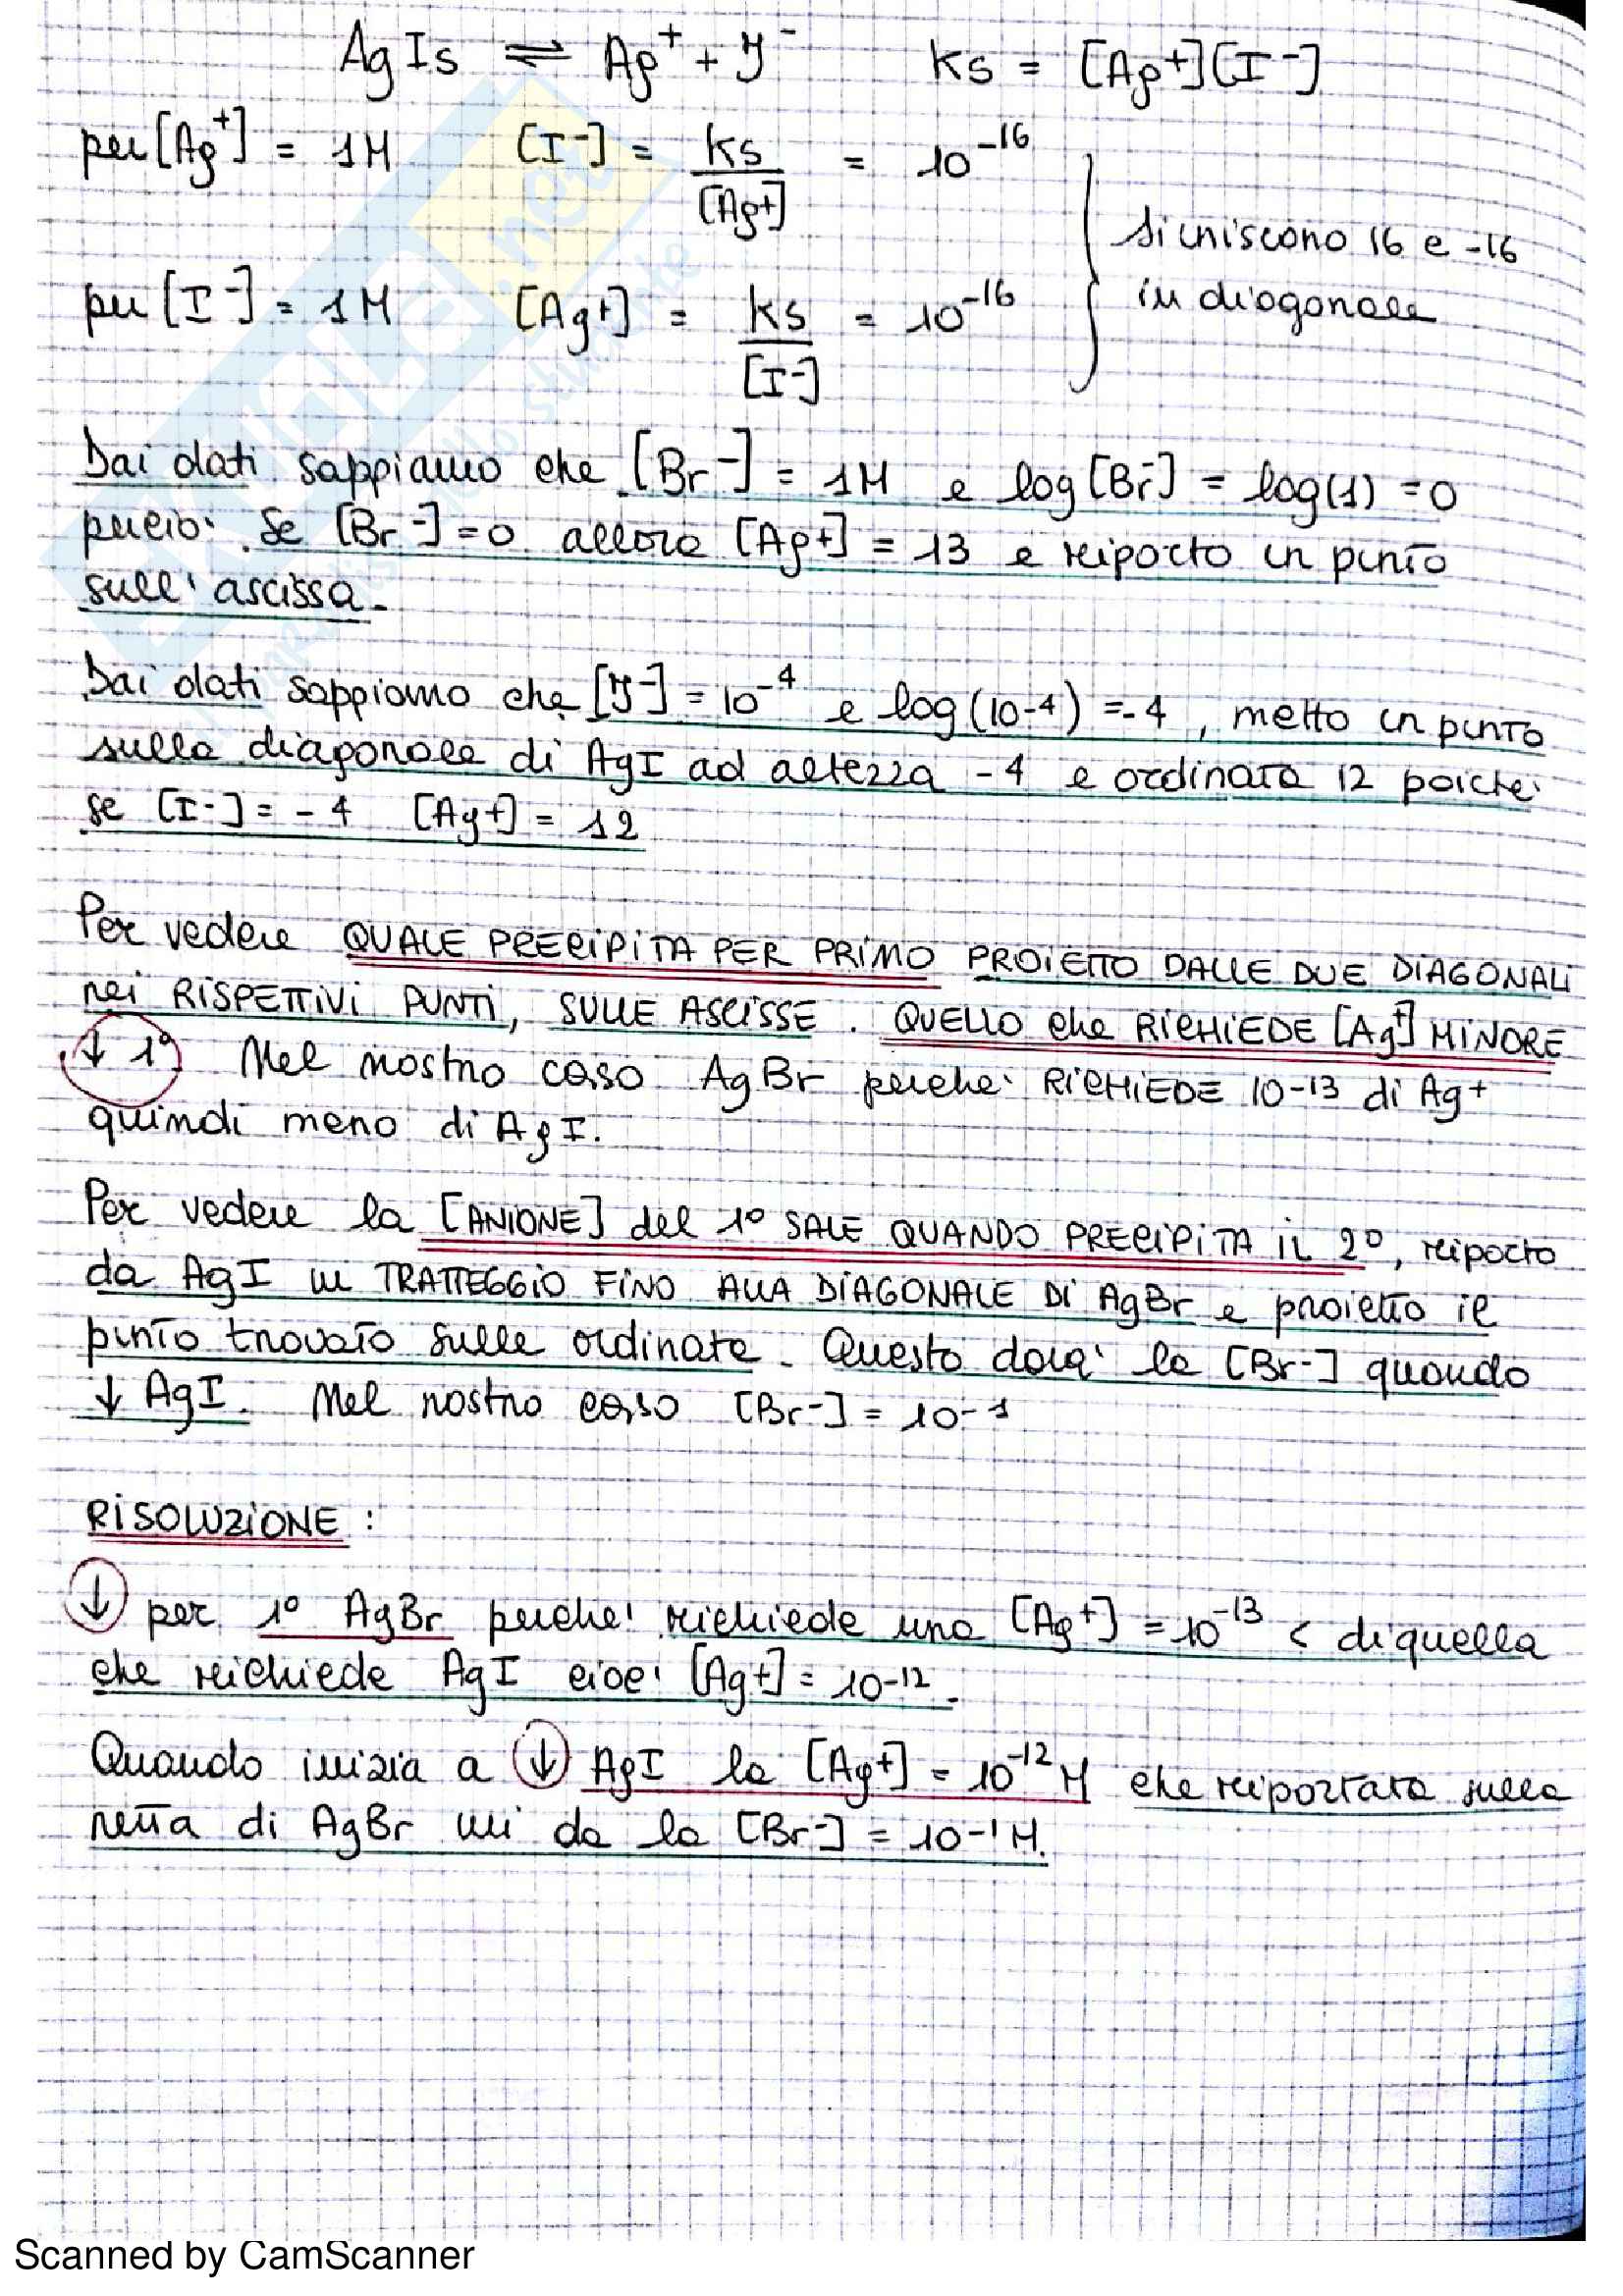 AgIs ⇌ Ag⁺ + I⁻ Ks = [Ag+][I⁻]
per [Ag⁺] = 1M [I⁻] = Ks/[Ag+] = 10⁻¹⁶
si uniscono 16 e -16
in diagonale
per [I⁻] = 1M [Ag+] = Ks/[I⁻] = 10⁻¹⁶
Dai dati sappiamo che [Br⁻] = 1M e log[Br⁻] = log(1) = 0
perciò se [Br⁻] = 0 allora [Ag+] = 13 e riporto un punto
sull'ascissa.
Dai dati sappiamo che [I⁻] = 10⁻⁴ e log(10-4) = -4, metto un punto
sulla diagonale di AgI ad altezza -4 e ordinata 12 poiché
se [I-] = -4 [Ag+] = 12
Per vedere QUALE PRECIPITA PER PRIMO PROIETTO DALLE DUE DIAGONALI
nei RISPETTIVI PUNTI, SULLE ASCISSE. QUELLO che RICHIEDE [Ag⁺] MINORE
↓ 1° Nel nostro caso AgBr perché RICHIEDE 10-13 di Ag+
quindi meno di AgI.
Per vedere la [ANIONE] del 1° SALE QUANDO PRECIPITA IL 2°, riporto
da AgI un TRATTEGGIO FINO ALLA DIAGONALE DI AgBr e proietto il
punto trovato sulle ordinate. Questo darà la [Br-] quando
↓ AgI. Nel nostro caso [Br-] = 10-1
RISOLUZIONE:
↓ per 1° AgBr perché richiede una [Ag⁺] = 10⁻¹³ < di quella
che richiede AgI cioè [Ag+] = 10-12.
Quando inizia a ↓ AgI la [Ag+] = 10⁻¹² M che riportata sulla
retta di AgBr mi da la [Br-] = 10-1 M.
Scanned by CamScanner